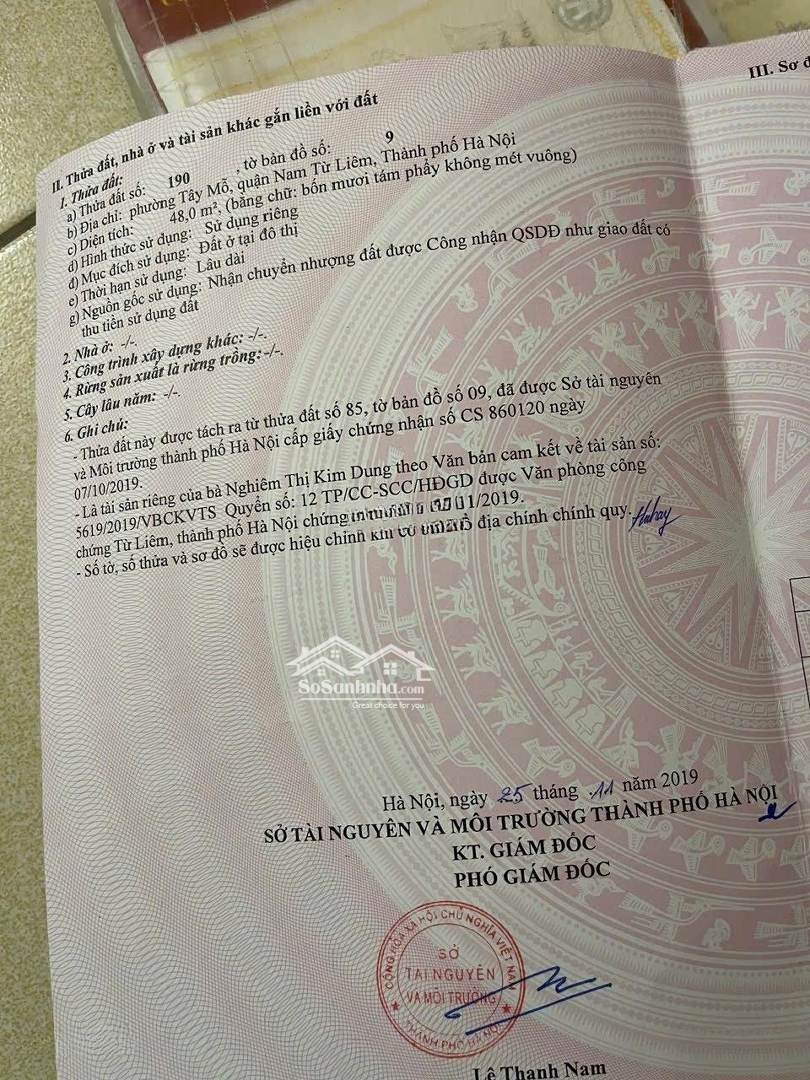 III. Sơ đ
II. Thửa đất, nhà ở và tài sản khác gắn liền với đất
1. Thửa đất:
a) Thửa đất số: 190 , tờ bản đồ số: 9
b) Địa chỉ: phường Tây Mỗ, quận Nam Từ Liêm, Thành phố Hà Nội
c) Diện tích: 48,0 m², (bằng chữ: bốn mươi tám phẩy không mét vuông)
d) Hình thức sử dụng: Sử dụng riêng
đ) Mục đích sử dụng: Đất ở tại đô thị
e) Thời hạn sử dụng: Lâu dài
g) Nguồn gốc sử dụng: Nhận chuyển nhượng đất được Công nhận QSDĐ như giao đất có
thu tiền sử dụng đất
2. Nhà ở: -/-.
3. Công trình xây dựng khác: -/-.
4. Rừng sản xuất là rừng trồng:-/-.
5. Cây lâu năm: -/-.
6. Ghi chú:
- Thửa đất này được tách ra từ thửa đất số 85, tờ bản đồ số 09, đã được Sở tài nguyên
và Môi trường thành phố Hà Nội cấp giấy chứng nhận số CS 860120 ngày
07/10/2019.
- Là tài sản riêng của bà Nghiêm Thị Kim Dung theo Văn bản cam kết về tài sản số:
5619/2019/VBCKVTS Quyển số: 12 TP/CC-SCC/HĐGD được Văn phòng công
chứng Từ Liêm, thành phố Hà Nội chứng 1/2019.
- Số tờ, số thửa và sơ đồ sẽ được hiệu chỉnh địa chính chính quy.
SoSanhnha.com
Great choice for you
Hà Nội, ngày 25 tháng 11 năm 2019
SỞ TÀI NGUYÊN VÀ MÔI TRƯỜNG THÀNH PHỐ HÀ NỘI
KT. GIÁM ĐỐC
PHÓ GIÁM ĐỐC
CỘNG HÒA XÃ HỘI CHỦ NGHĨA VIỆT NAM
SỞ
TÀI NGUYÊN
VÀ MÔI TRƯỜNG
THÀNH PHỐ HÀ NỘI
Lê Thanh Nam